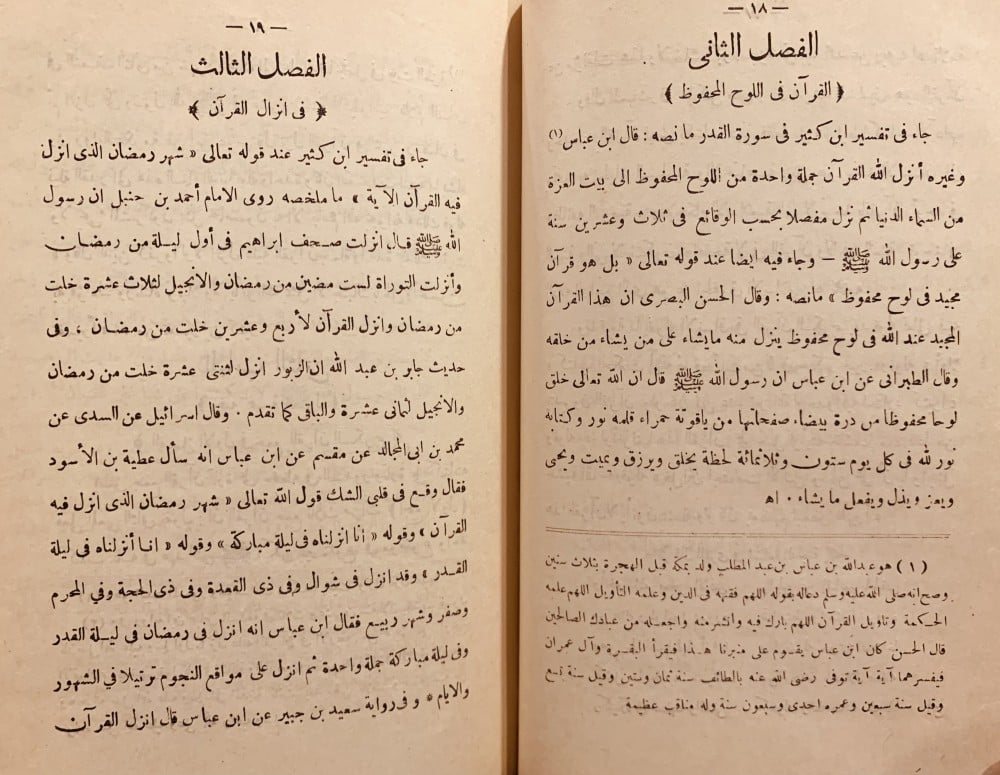 — ١٨ —
الفصل الثانى
﴿ القرآن فى اللوح المحفوظ ﴾
جاء فى تفسير ابن كثير فى سورة القدر ما نصه : قال ابن عباس (١)
وغيره أنزل الله القرآن جملة واحدة من اللوح المحفوظ الى بيت العزة
من السماء الدنيا ثم نزل مفصلا بحسب الوقائع فى ثلاث وعشرين سنة
على رسول الله ﷺ — وجاء فيه ايضا عند قوله تعالى « بل هو قرآن
مجيد فى لوح محفوظ » مانصه : وقال الحسن البصرى ان هذا القرآن
المجيد عند الله فى لوح محفوظ ينزل منه مايشاء على من يشاء من خلقه
وقال الطبرانى عن ابن عباس ان رسول الله ﷺ قال ان الله تعالى خلق
لوحا محفوظا من درة بيضاء صفحاتها من ياقوتة حمراء قلمه نور وكتابه
نور لله فى كل يوم ستون وثلاثمائة لحظة يخلق ويرزق ويميت ويحى
ويعز ويذل ويفعل ما يشاء . اه
( ١ ) هو عبدالله بن عباس بن عبد المطلب ولد بمكة قبل الهجرة بثلاث سنين
وصح انه صلى الله عليه وسلم دعا له بقوله اللهم فقهه فى الدين وعلمه التأويل اللهم علمه
الحكمة وتاويل القرآن اللهم بارك فيه وانشر منه واجعله من عبادك الصالحين
قال الحسن كان ابن عباس يقوم على منبرنا هذا فيقرأ البقرة وآل عمران
فيفسرهما آية آية توفى رضى الله عنه بالطائف سنة ثمان وستين وقيل سنة تسع
وقيل سنة سبعين وعمره احدى وسبعون سنة وله مناقب عظيمة
— ١٩ —
الفصل الثالث
﴿ فى انزال القرآن ﴾
جاء فى تفسير ابن كثير عند قوله تعالى « شهر رمضان الذى انزل
فيه القرآن الآية » ما ملخصه روى الامام أحمد بن حنبل ان رسول
الله ﷺ قال انزلت صحف ابراهيم فى أول ليلة من رمضان
وأنزلت التوراة لست مضين من رمضان والانجيل لثلاث عشرة خلت
من رمضان وانزل القرآن لأربع وعشرين خلت من رمضان ، وفى
حديث جابر بن عبد الله ان الزبور انزل لثنتى عشرة خلت من رمضان
والانجيل لثمانى عشرة والباقى كما تقدم . وقال اسرائيل عن السدى عن
محمد بن ابى المجالد عن مقسم عن ابن عباس انه سأل عطية بن الأسود
فقال وقع فى قلبى الشك قول الله تعالى « شهر رمضان الذى انزل فيه
القرآن » وقوله « انا انزلناه فى ليلة مباركة » وقوله « انا أنزلناه فى ليلة
القدر » وقد انزل فى شوال وفى ذى القعدة وفى ذى الحجة وفي المحرم
وصفر وشهر ربيع فقال ابن عباس انه انزل فى رمضان فى ليلة القدر
وفى ليلة مباركة جملة واحدة ثم انزل على مواقع النجوم ترتيلا في الشهور
والايام * وفى رواية سعيد بن جبير عن ابن عباس قال انزل القرآن